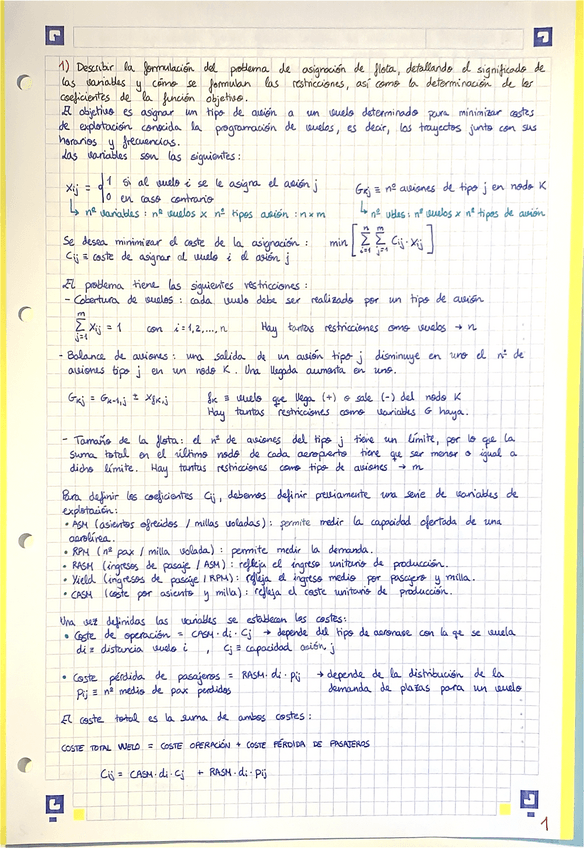 1) Describir la formulación del problema de asignación de flota, detallando el significado de
las variables y cómo se formulan las restricciones, así como la determinación de los
coeficientes de la función objetivo.
El objetivo es asignar un tipo de avión a un vuelo determinado para minimizar costes
de explotación conocida la programación de vuelos, es decir, los trayectos junto con sus
horarios y frecuencias.
Las variables son las siguientes:
Xij = { 1 si al vuelo i se le asigna el avión j
0 en caso contrario
Gkj ≡ nº aviones de tipo j en nodo K
↳ nº variables: nº vuelos x nº tipos avión: n x m
↳ nº vbles: nº vuelos x nº tipos de avión
Se desea minimizar el coste de la asignación: min [ Σ(i=1, n) Σ(j=1, m) Cij · Xij ]
Cij ≡ coste de asignar al vuelo i el avión j
El problema tiene las siguientes restricciones:
- Cobertura de vuelos: cada vuelo debe ser realizado por un tipo de avión
Σ(j=1, m) Xij = 1 con i=1,2,..., n Hay tantas restricciones como vuelos → n
- Balance de aviones: una salida de un avión tipo j disminuye en uno el nº de
aviones tipo j en un nodo K. Una llegada aumenta en uno.
Gkj = Gk-1,j ± Xfk,j fk ≡ vuelo que llega (+) o sale (-) del nodo K
Hay tantas restricciones como variables G haya.
- Tamaño de la flota: el nº de aviones del tipo j tiene un límite, por lo que la
suma total en el último nodo de cada aeropuerto tiene que ser menor o igual a
dicho límite. Hay tantas restricciones como tipo de aviones → m
Para definir los coeficientes Cij, debemos definir previamente una serie de variables de
explotación:
• ASM (asientos ofrecidos / millas voladas): permite medir la capacidad ofertada de una
aerolínea.
• RPM (nº pax / milla volada): permite medir la demanda.
• RASM (ingresos de pasaje / ASM): refleja el ingreso unitario de producción.
• Yield (ingresos de pasaje / RPM): refleja el ingreso medio por pasajero y milla.
• CASM (coste por asiento y milla): refleja el coste unitario de producción.
Una vez definidas las variables se establecen los costes:
• Coste de operación = CASM · di · Cj → depende del tipo de aeronave con la qe se vuela
di ≡ distancia vuelo i , Cj ≡ capacidad avión j
• Coste pérdida de pasajeros = RASM · di · Pij → depende de la distribución de la
Pij ≡ nº medio de pax perdidos demanda de plazas para un vuelo
El coste total es la suma de ambos costes:
COSTE TOTAL VUELO = COSTE OPERACIÓN + COSTE PÉRDIDA DE PASAJEROS
Cij = CASM · di · Cj + RASM · di · Pij
1